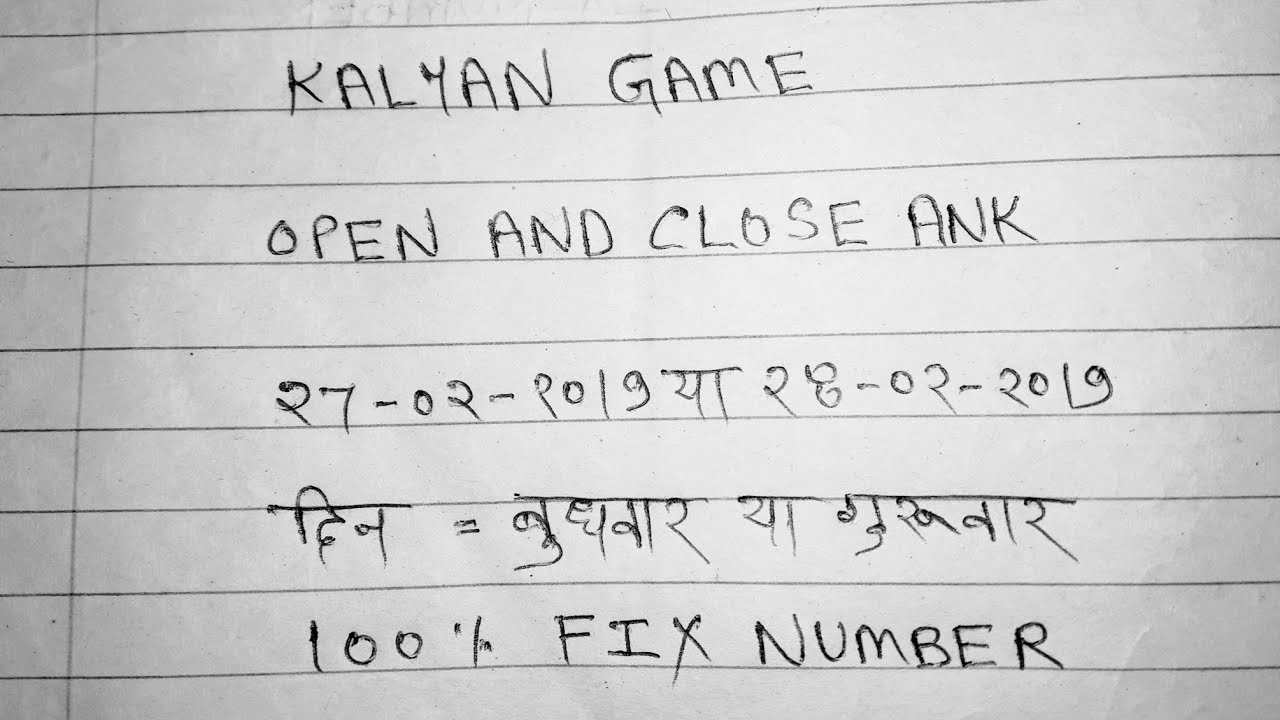 KALYAN GAME
OPEN AND CLOSE ANK
२7-०२-२०19 या २8-०२-२०19
दिन = बुधवार या गुरूवार
100% FIX NUMBER